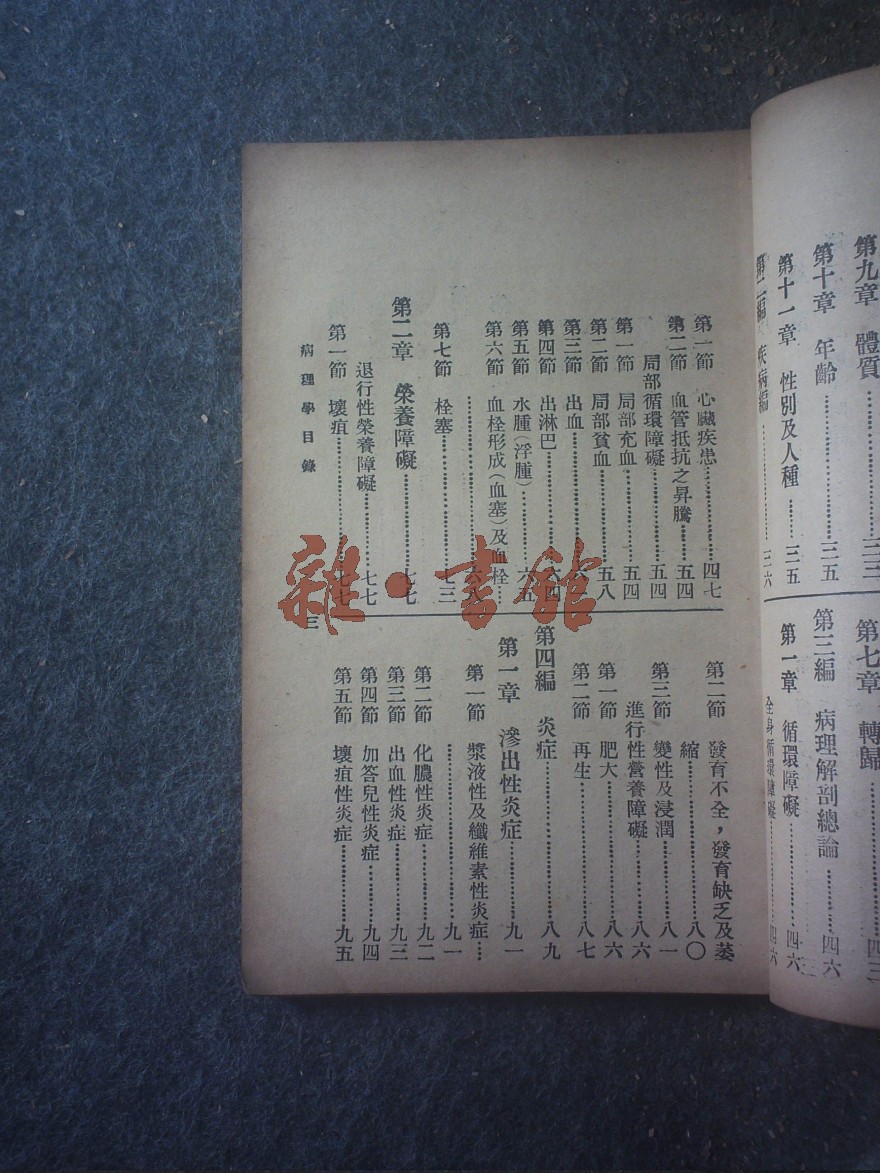 第九章 體質………三三
第十章 年齡………三五
第十一章 性別及人種………三五
第二編 疾病編………三六
第七章 轉歸………四三
第三編 病理解剖總論………四六
第一章 循環障礙………四六
全身循環障礙………四六
第一節 心臟疾患………四七
第二節 血管抵抗之昇騰………五四
局部循環障礙………五四
第一節 局部充血………五四
第二節 局部貧血………五八
第三節 出血………六
第四節 出淋巴………六四
第五節 水腫(浮腫)………六五
第六節 血栓形成(血塞)及血栓…
………六八
第七節 栓塞………七三
第二章 榮養障礙………七七
退行性榮養障礙………七七
第一節 壞疽………七七
病理學目錄
三
第二節 發育不全，發育缺乏及萎
縮………八〇
第三節 變性及浸潤………八一
進行性營養障礙………八六
第一節 肥大………八六
第二節 再生………八七
第四編 炎症………八九
第一章 滲出性炎症………九一
第一節 漿液性及纖維素性炎症…
………九一
第二節 化膿性炎症………九二
第三節 出血性炎症………九三
第四節 加答兒性炎症………九四
第五節 壞疽性炎症………九五
雜·書館